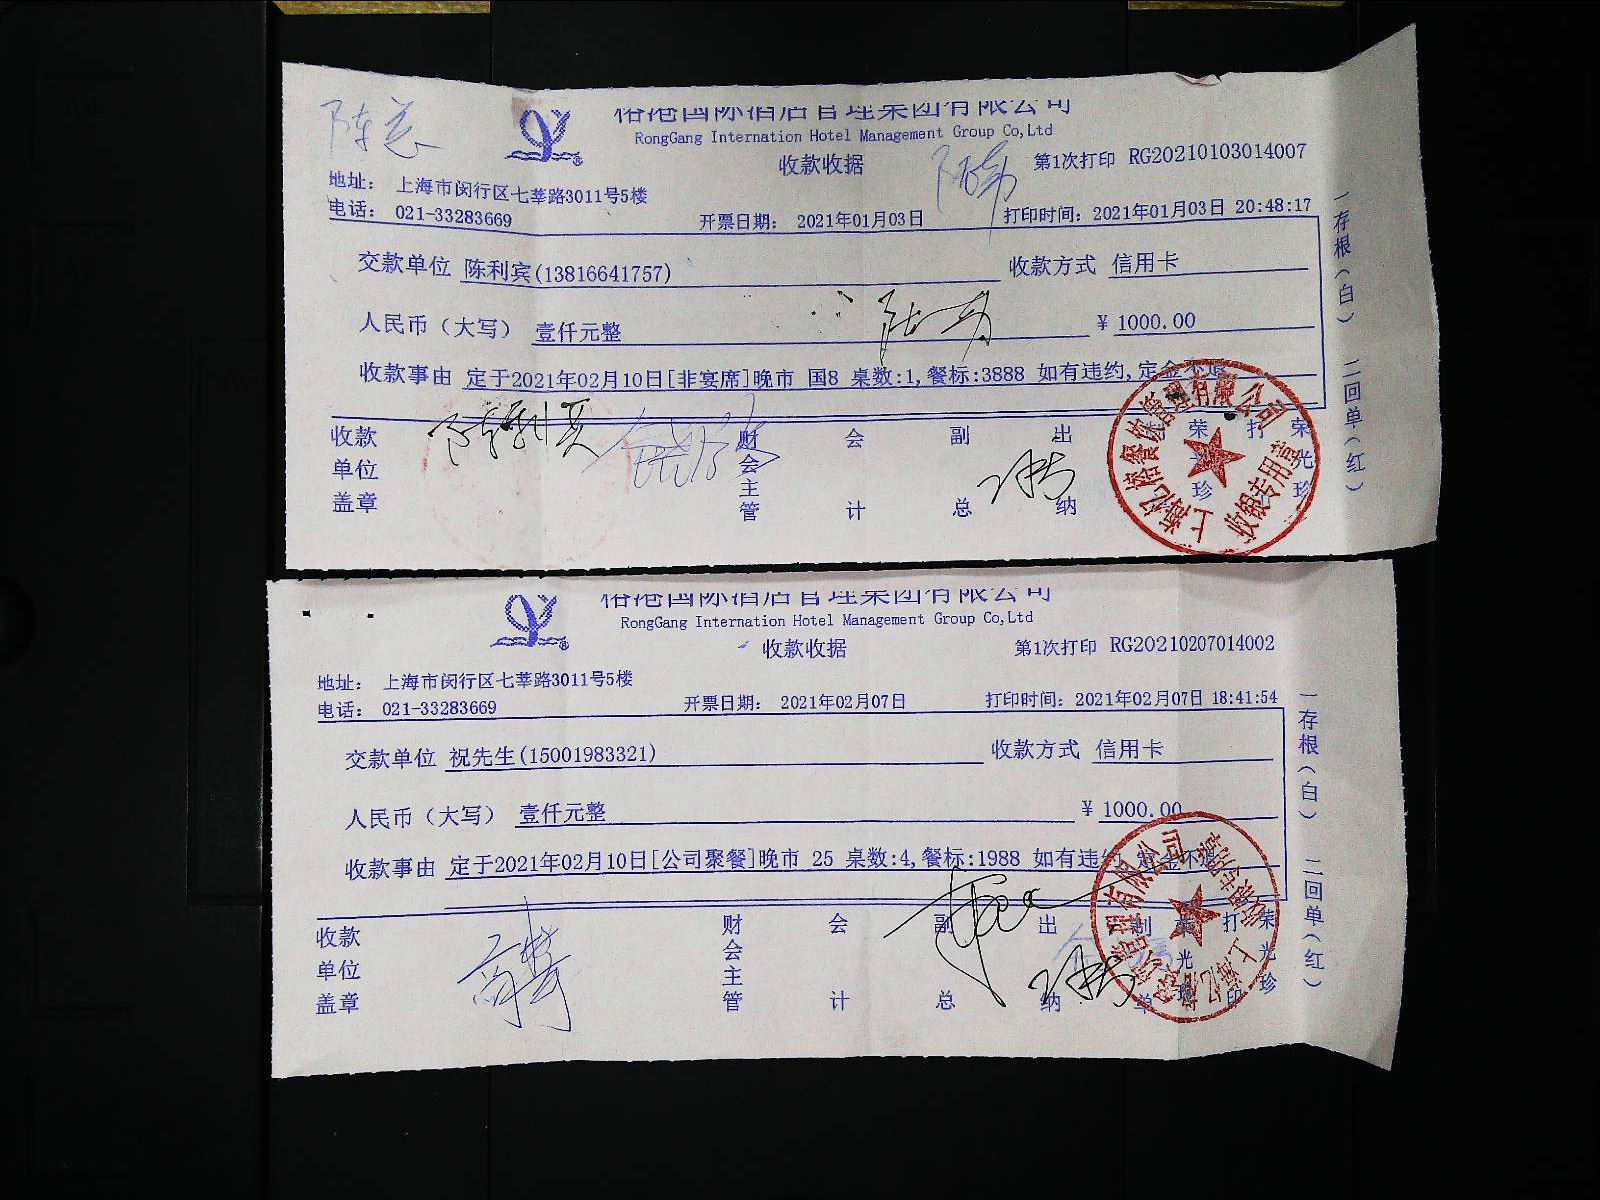 裕港国际酒店管理集团有限公司
RongGang Internation Hotel Management Group Co,Ltd
收款收据
第1次打印 RG20210103014007
地址： 上海市闵行区七莘路3011号5楼
电话： 021-33283669
开票日期： 2021年01月03日
打印时间：2021年01月03日 20:48:17
交款单位 陈利宾(13816641757)
收款方式 信用卡
人民币（大写） 壹仟元整
¥ 1000.00
收款事由 定于2021年02月10日[非宴席]晚市 国8 桌数:1,餐标:3888 如有违约,定金不退
收款单位盖章
财会主管
会计
副总
出纳
荣光珍
打
荣光珍
上海亿裕餐饮管理有限公司
收银专用章
一存根（白） 二回单（红）
裕港国际酒店管理集团有限公司
RongGang Internation Hotel Management Group Co,Ltd
收款收据
第1次打印 RG20210207014002
地址： 上海市闵行区七莘路3011号5楼
电话： 021-33283669
开票日期： 2021年02月07日
打印时间：2021年02月07日 18:41:54
交款单位 祝先生(15001983321)
收款方式 信用卡
人民币（大写） 壹仟元整
¥ 1000.00
收款事由 定于2021年02月10日[公司聚餐]晚市 25 桌数:4,餐标:1988 如有违约,定金不退
收款单位盖章
财会主管
会计
副总
出纳
制单
荣光珍
打印
荣光珍
一存根（白） 二回单（红）